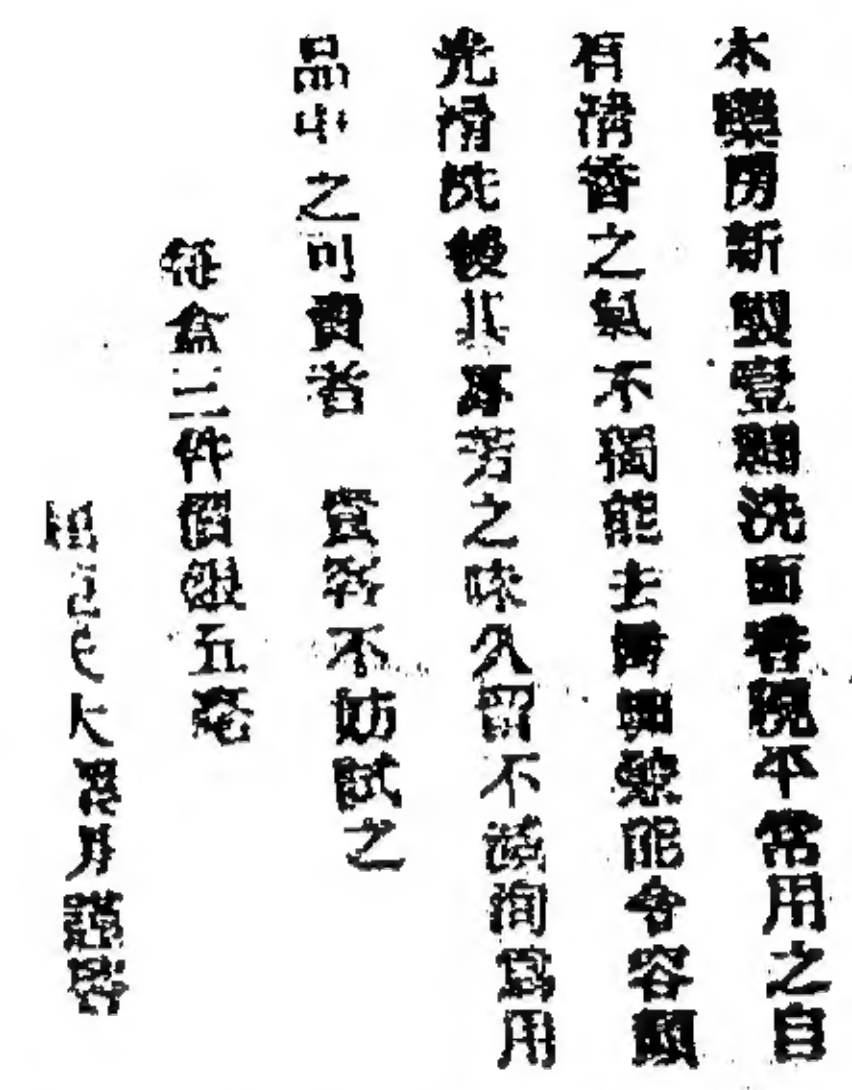 本藥房新製壹種洗面香梘平常用之自
有清香之氣不獨能去垢與藥能令容顏
光滑洗後其芬芳之味久留不散洵為用
品中之可貴者 賞鑒不妨試之
每盒三件價銀五毫
大藥房謹啓